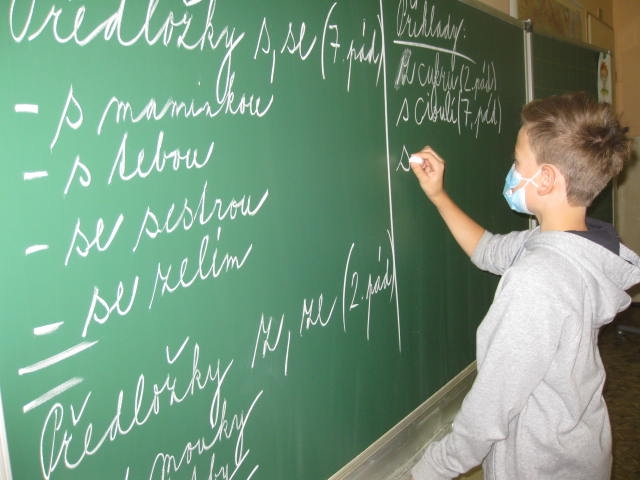 Předložky s, se (7. pád)
- s maminkou
- s tebou
- se sestrou
- se zelím
Předložky z, ze (2. pád)
mouky
Příklady:
z cukru (2. pád)
s cibulí (7. pád)
s